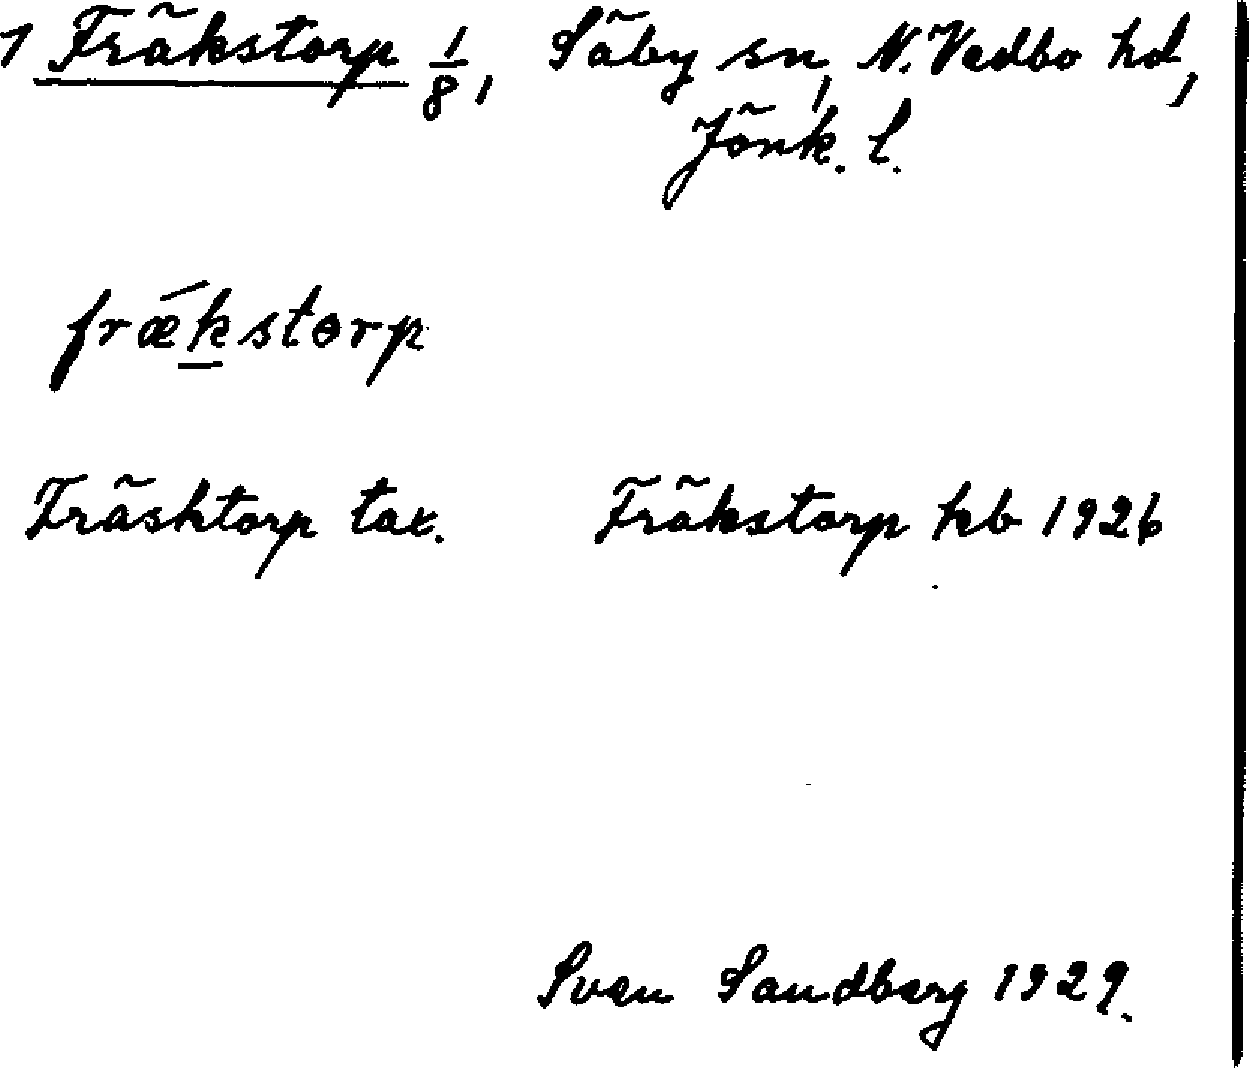 1 Fräkstorp 1/8, Säby sn, N. Vedbo hd,
Jönk. l.
frǽkstorp
Fräsktorp tax. Fräkstorp kb 1926
Sven Sandberg 1929.